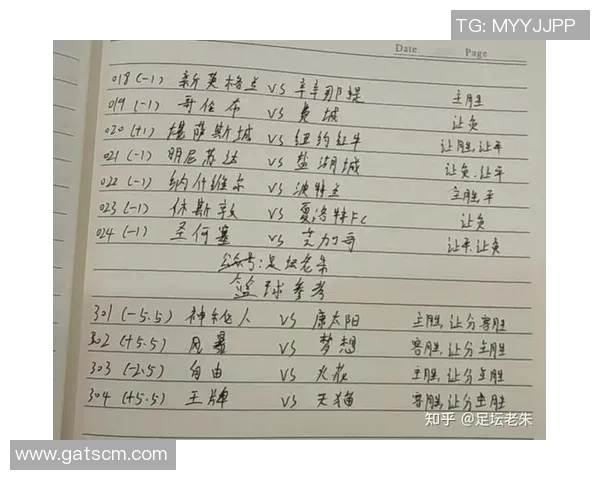 TG: MYYJJPP
Date Page
018(-1) 新英格兰 VS 辛辛那提 主胜
019(-1) 哥伦布 VS 费城 让负
020(+1) 堪萨斯城 VS 纽约红牛 让胜,让平
021(-1) 明尼苏达 VS 盐湖城 让负.让平
022(-1) 纳什维尔 VS 波特兰 主胜,平
023(-1) 休斯敦 VS 夏洛特FC 让负
024(-1) 圣何塞 VS 芝加哥 让平.让负
公众号:足坛老朱
篮球参考
301(-5.5) 神秘人 VS 康太阳 主胜,让分客胜
302(+5.5) 风暴 VS 梦想 客胜,让分主胜
303(-2.5) 自由 VS 火花 主胜,让分主胜
304(+5.5) 王牌 VS 天猫 客胜,让分主胜
知乎 @足坛老朱
www.gatscm.com